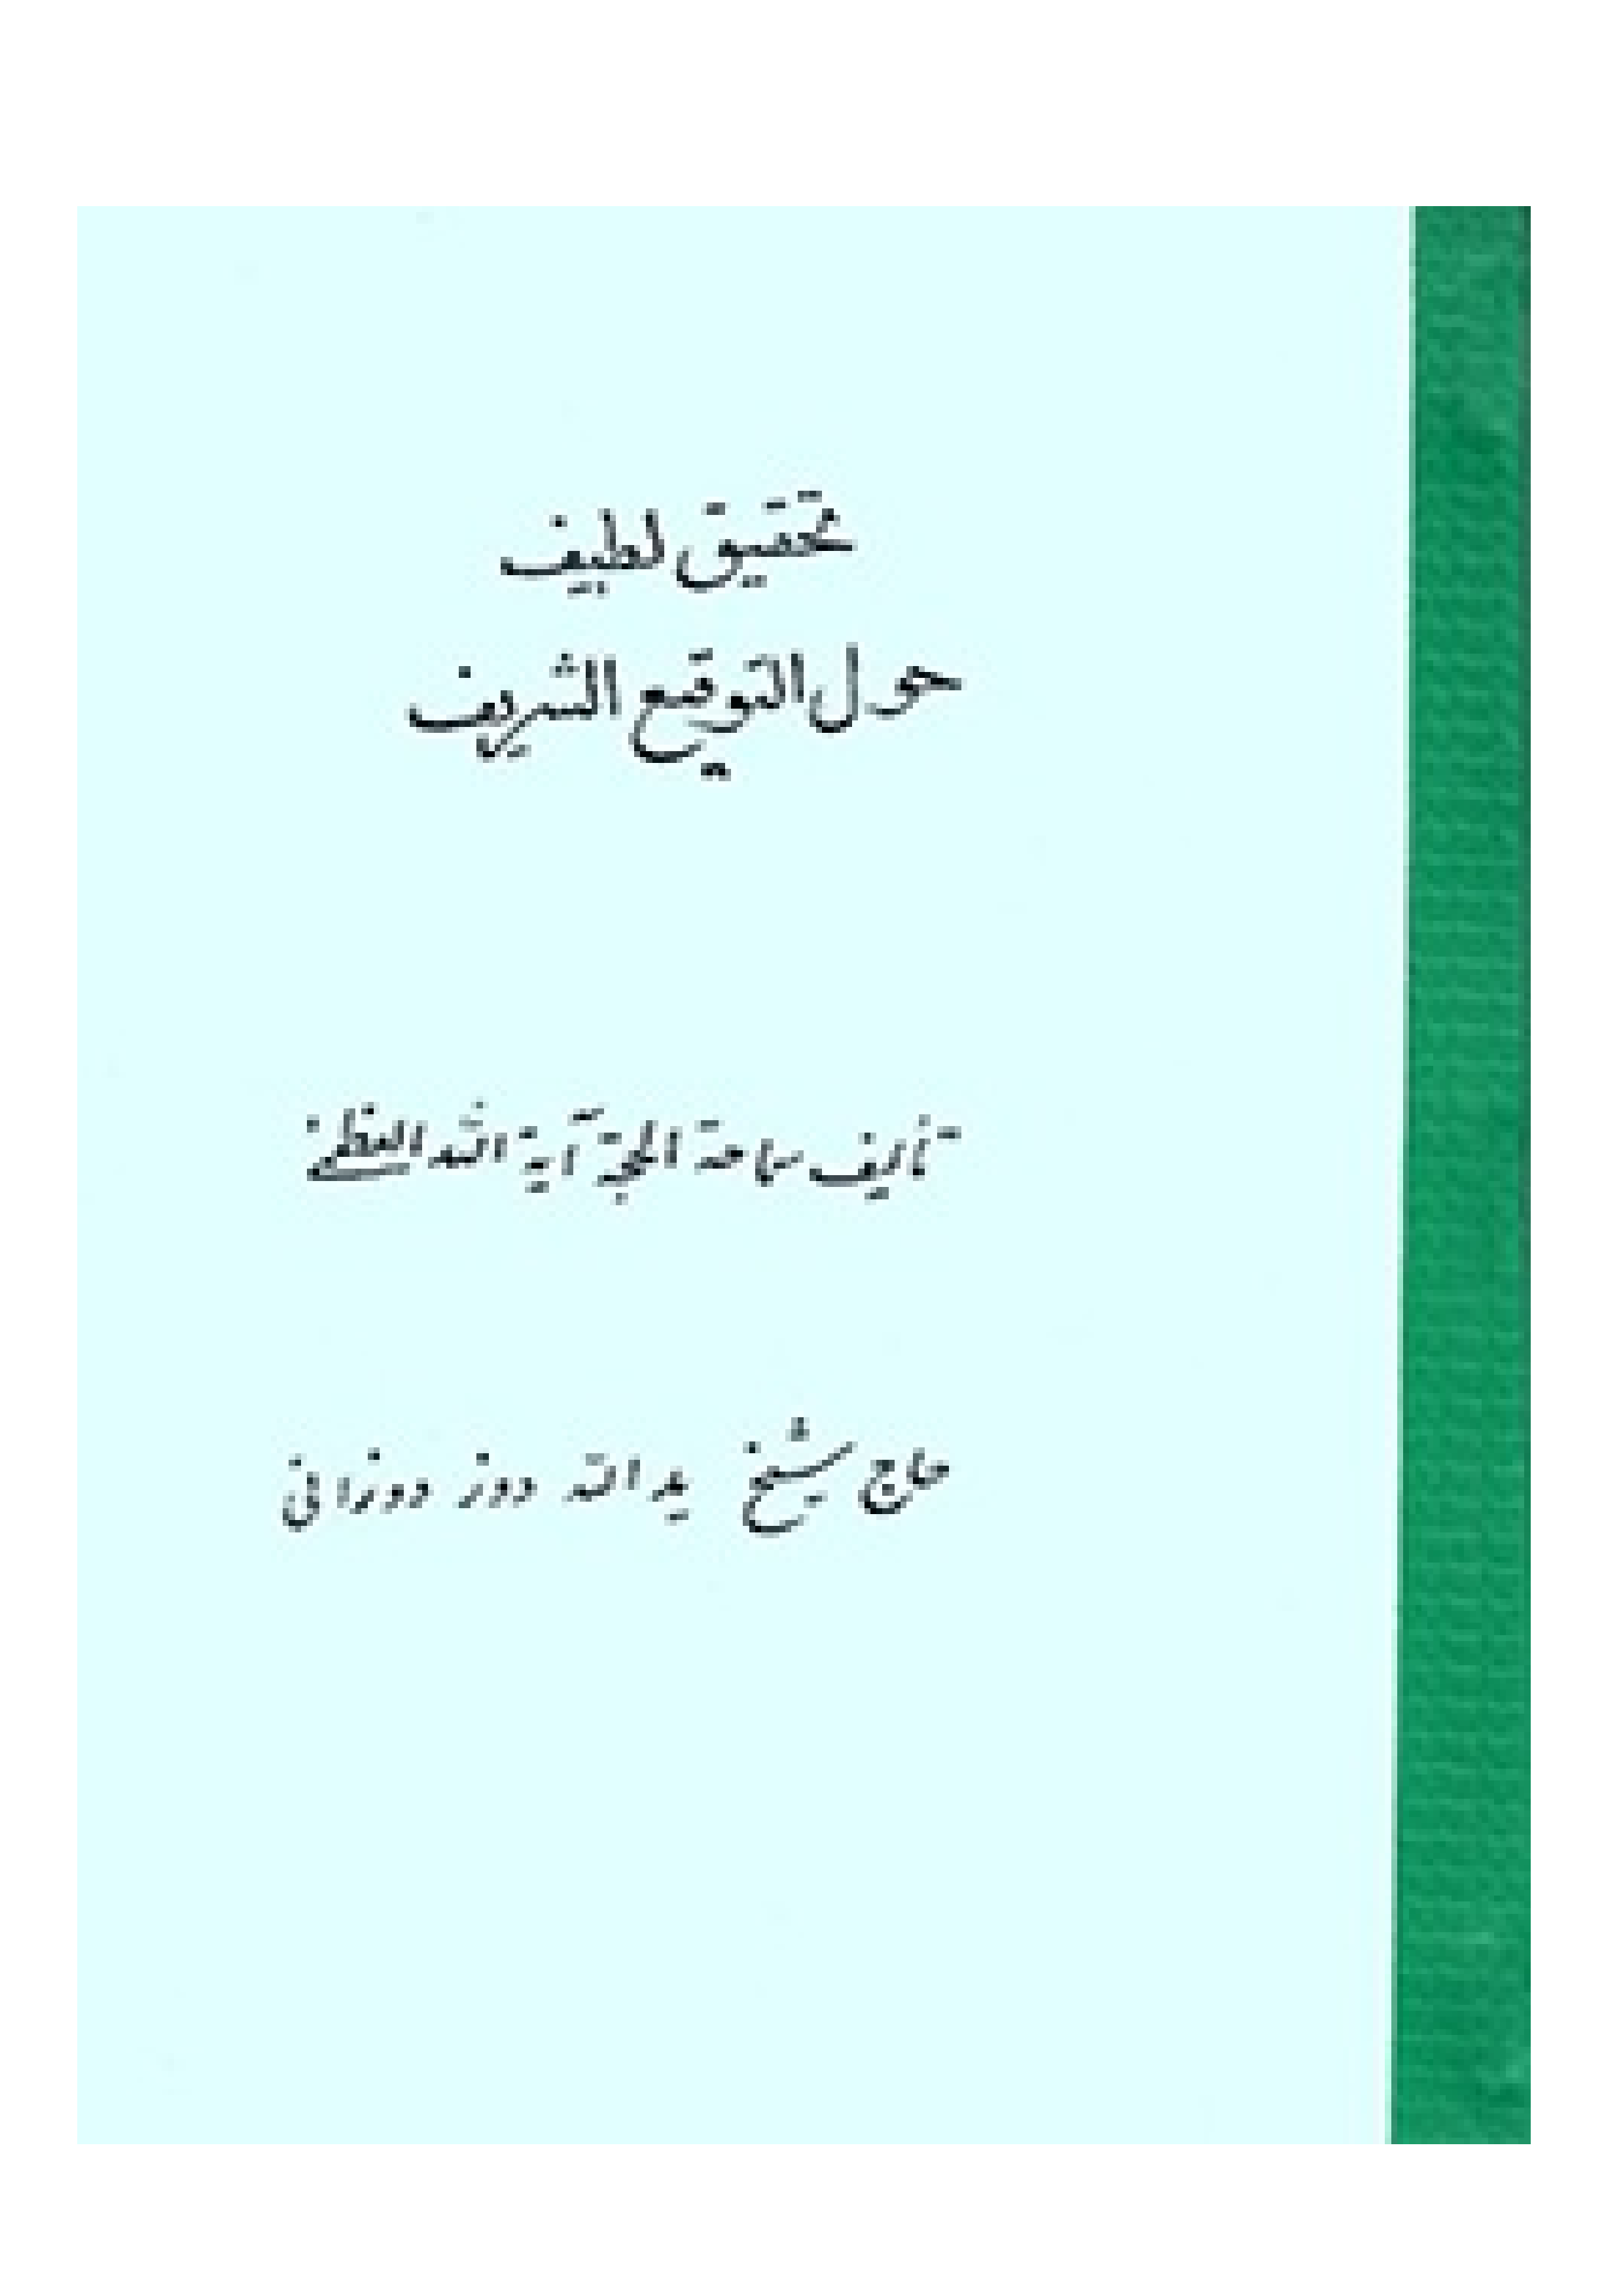 تحقيق لطيف
حول التوقيع الشريف
تأليف سماحة الحجة آية الله العظمى
حاج شيخ يد الله دوز دوزانى